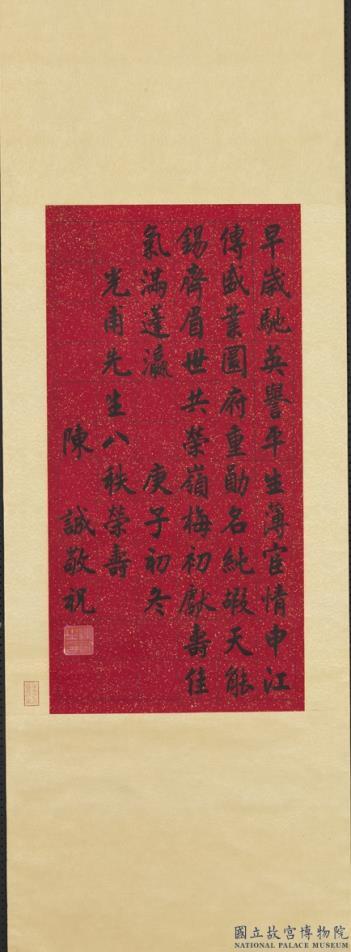 早歲馳英譽平生薄宦情申江
傳盛業圜府重勛名純嘏天能
錫齊眉世共榮嶺梅初獻壽佳
氣滿蓬瀛　庚子初冬
光甫先生八秩榮壽
陳誠敬祝
國立故宮博物院
NATIONAL PALACE MUSEUM